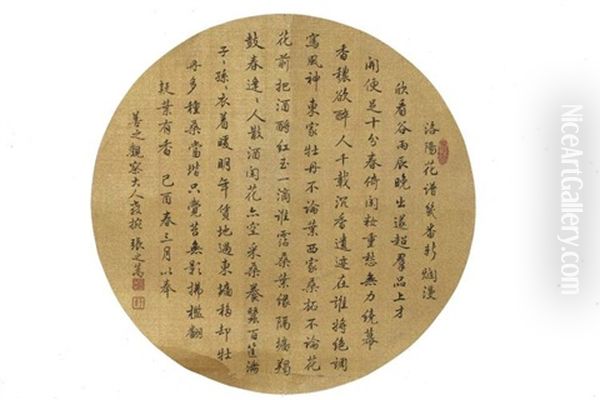 洛陽花譜幾番新爛漫
欣看谷雨辰曉出還超羣品上才
開便足十分春倚闌妝重愁無力繞幕
香穠欲醉人千載沉香遺迹在誰將絕調
寫風神東家牡丹不論葉西家桑柘不論花
花前把酒酹紅玉一滴誰霑桑葉綠隔墻羯
鼓春逢〻人散酒闌花亦空采桑養蠶百筐滿
子〻孫〻衣着暖明年賃地過東墻移却牡
丹多種桑當堦只覺苔無影拂檻翻
疑葉有香 己酉春三月以奉
善之觀察大人教梡 張之萬
NiceArtGallery.com